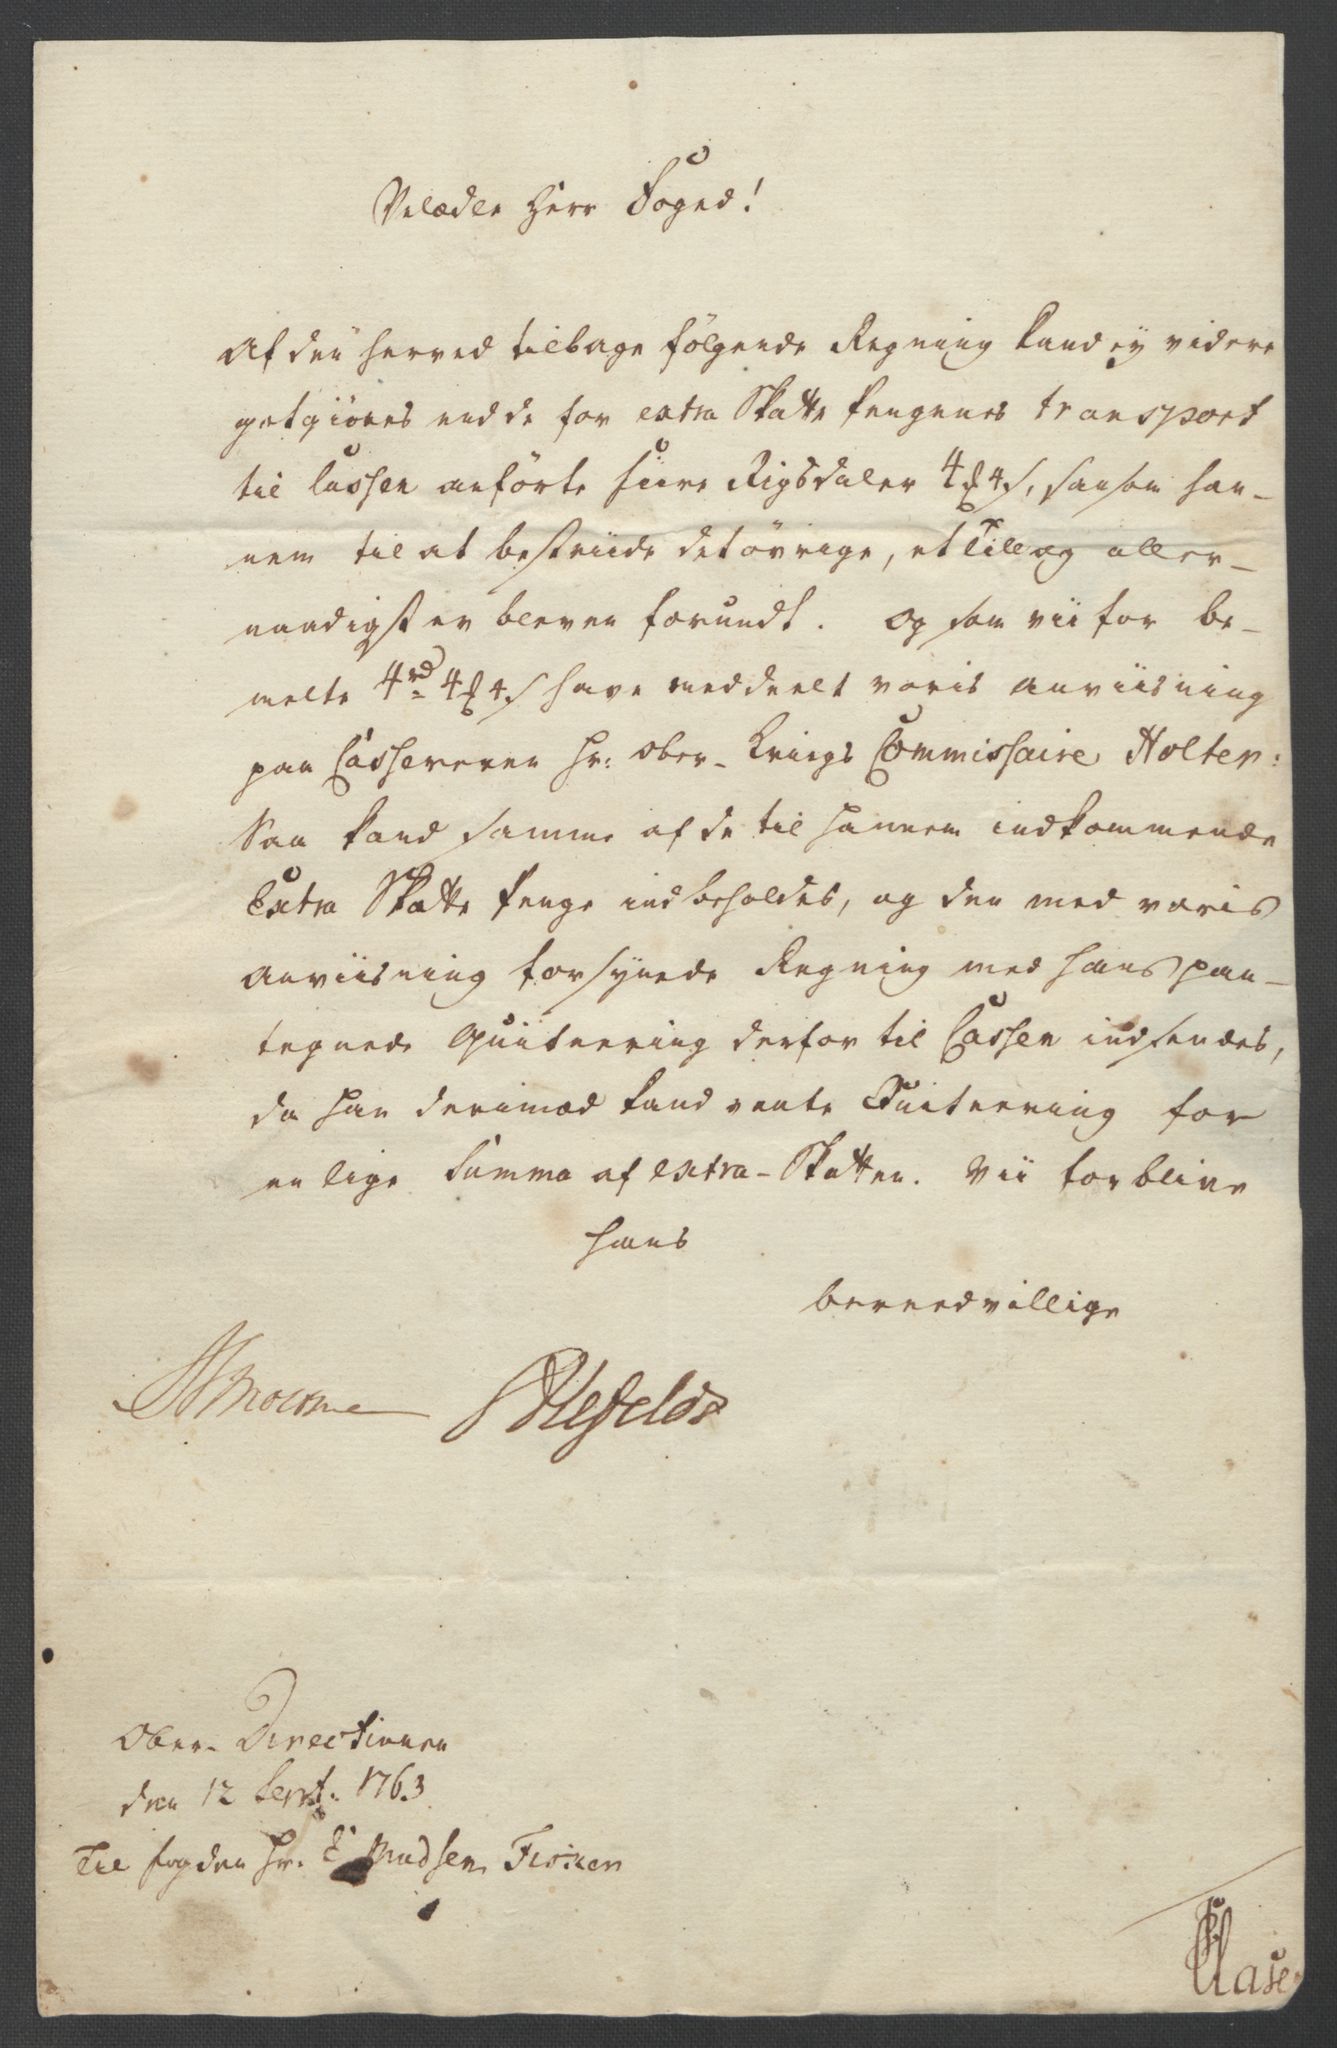 Velædle Herr Foged!
Af den herved tilbage fölgende Regning kand ey videre
gotgiöres end de for extra Skatte Pengenes transport
til Cassen anförte fiire Rigsdaler 4 4 s, saasom han-
nem til at bestriide det övrige, et Tillæg aller-
naadigst er bleven forundt. Og som vii for be-
melte 4 rd 4 4 s have meddeelt voris Anviisning
paa Cassereren Hr: Ober-Krigs Commissaire Holter:
Saa kand samme af de til hannem indkommende
Extra Skatte Penge indbeholdes, og den med voris
Anviisning forsynede Regning med hans paa-
tegnede Quiteering derfor til Cassen indsendes,
da han derimod kand vente Quiteering for
en lige Summa af extra-Skatten. Vii forblive
hans
bereedvillige
Ober-Directionen
den 12 Sept. 1763
Til fogden Hr. Madsen